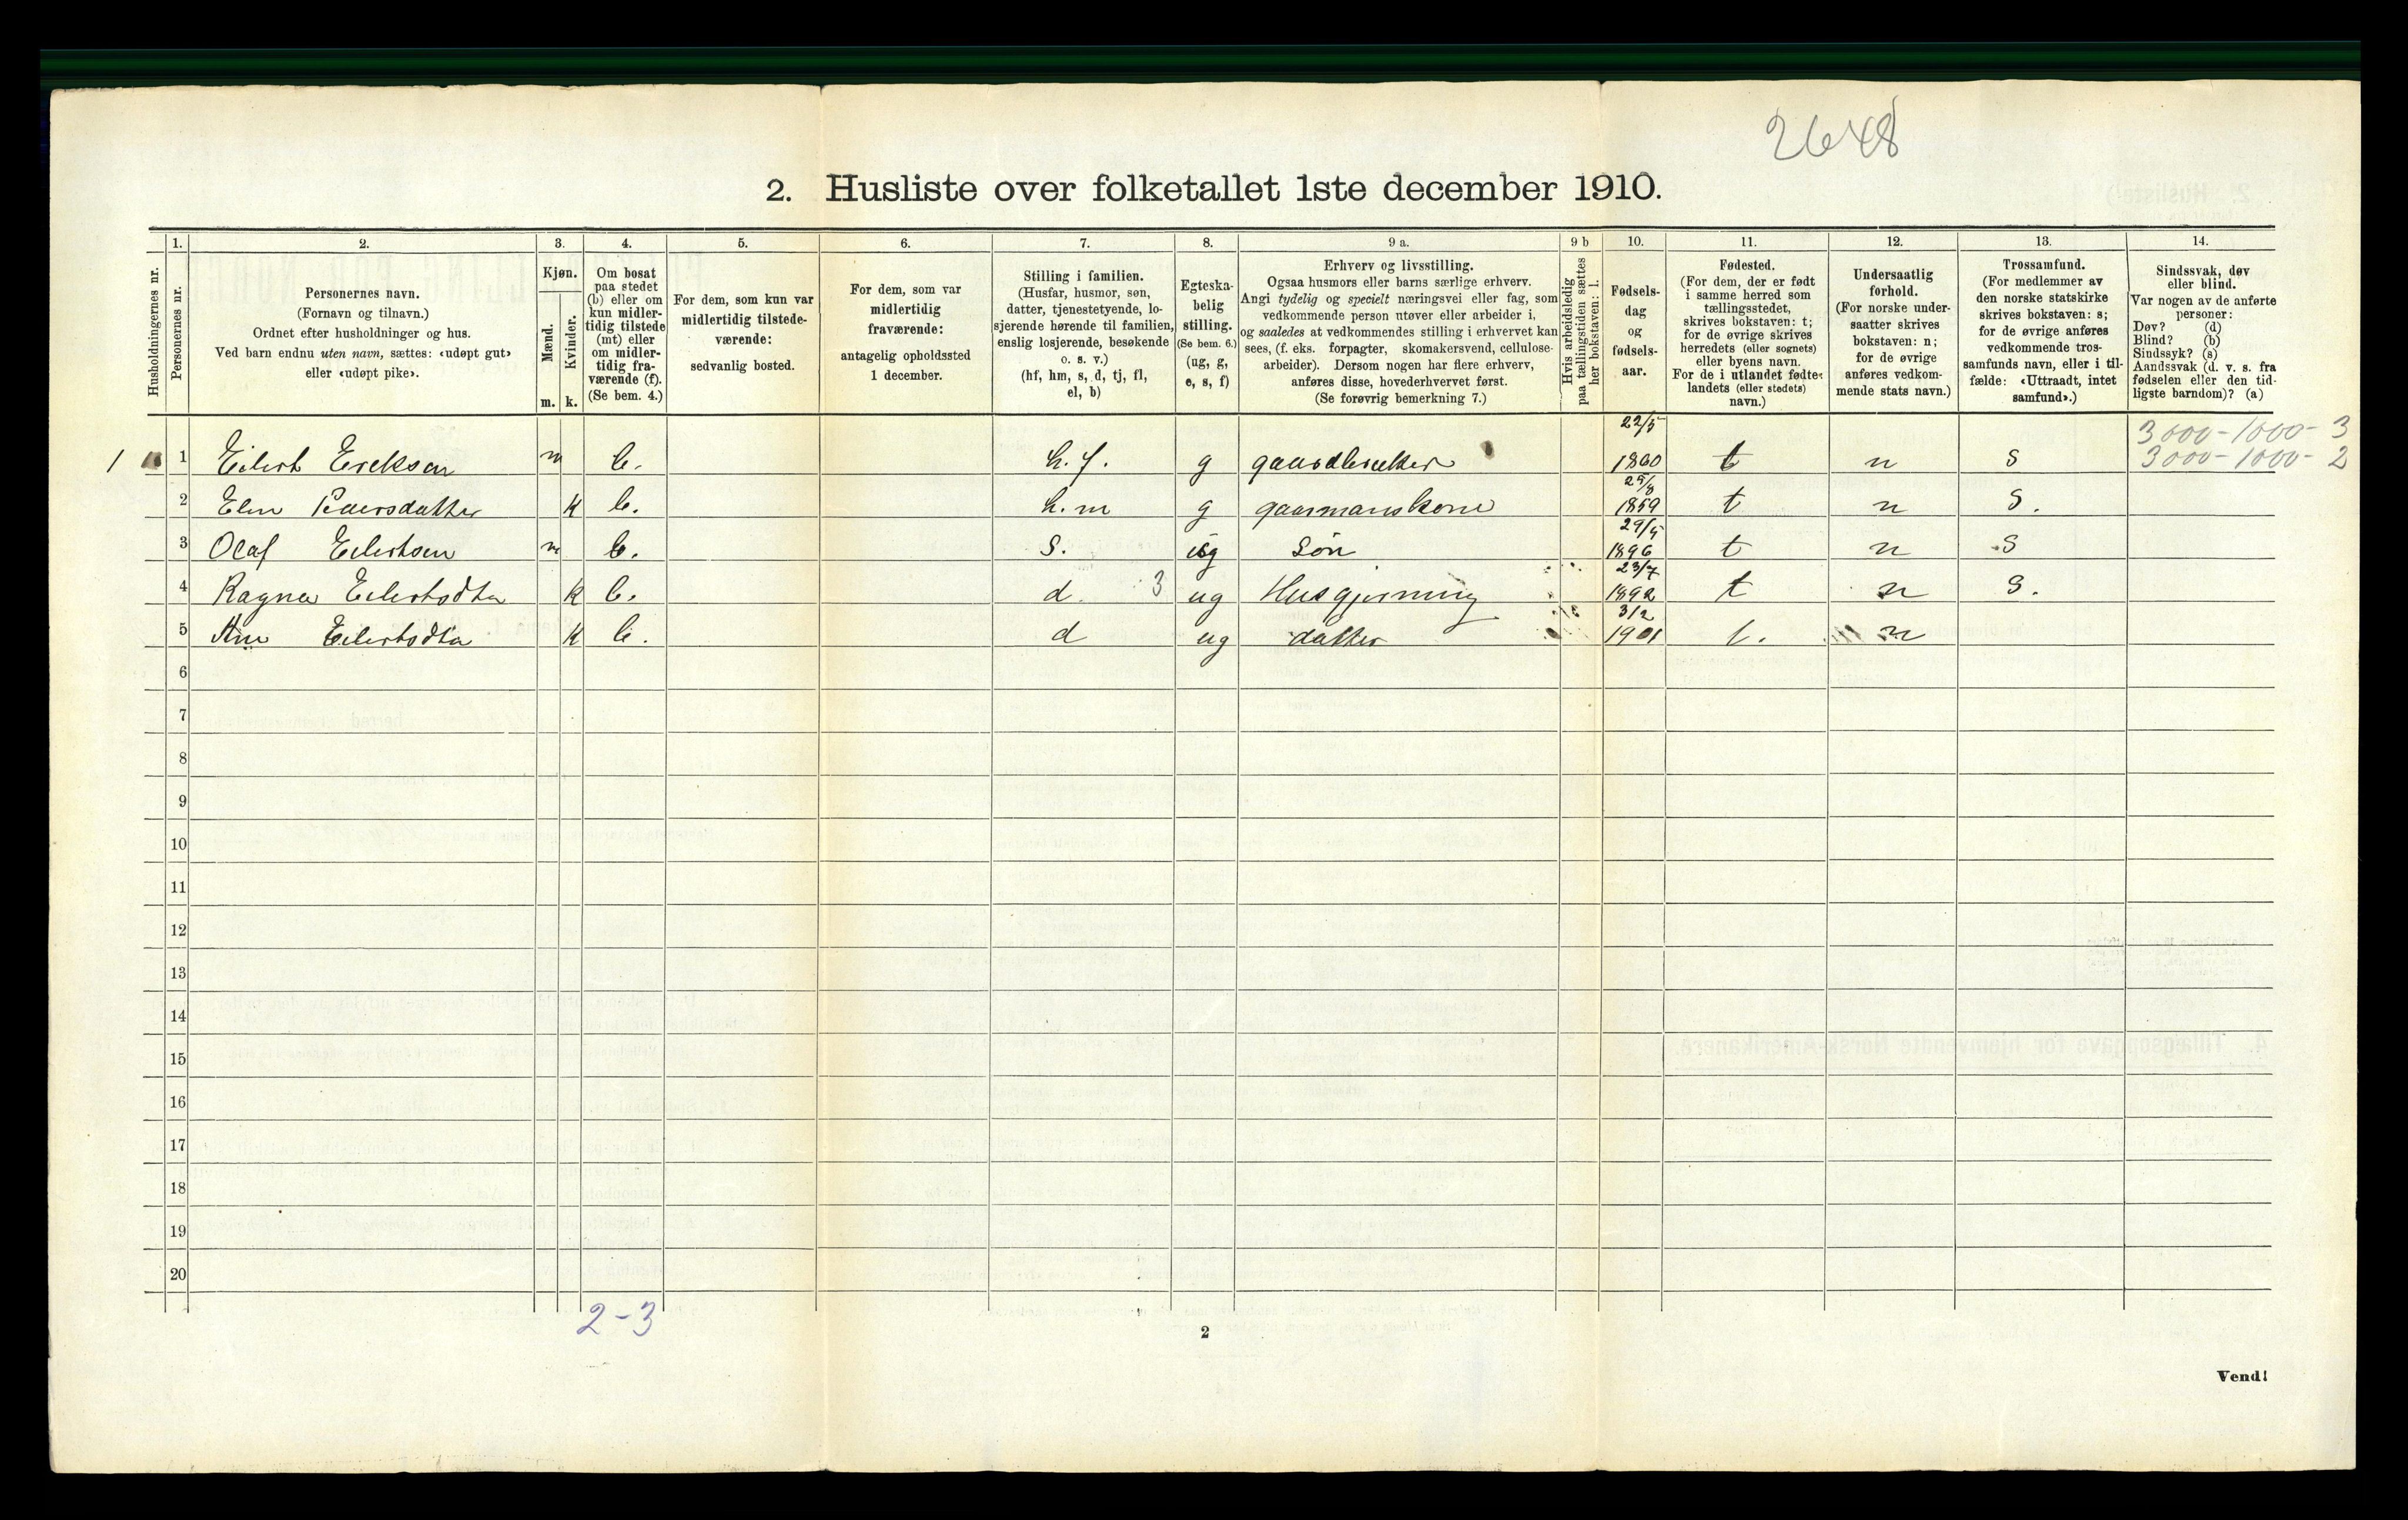 2648
2. Husliste over folketallet 1ste december 1910.
Husholdningernes nr.
1. Personernes nr.
2. Personernes navn.
(Fornavn og tilnavn.)
Ordnet efter husholdninger og hus.
Ved barn endnu uten navn, sættes: «udøpt gut»
eller «udøpt pike».
3. Kjøn.
Mænd. m.
Kvinder. k.
4. Om bosat
paa stedet
(b) eller om
kun midler-
tidig tilstede
(mt) eller
om midler-
tidig fra-
værende (f).
(Se bem. 4.)
5. For dem, som kun var
midlertidig tilstede-
værende:
sedvanlig bosted.
6. For dem, som var
midlertidig
fraværende:
antagelig opholdssted
1 december.
7. Stilling i familien.
(Husfar, husmor, søn,
datter, tjenestetyende, lo-
sjerende hørende til familien,
enslig losjerende, besøkende
o. s. v.)
(hf, hm, s, d, tj, fl,
el, b)
8. Egteska-
belig
stilling.
(Se bem. 6.)
(ug, g,
e, s, f)
9 a. Erhverv og livsstilling.
Ogsaa husmors eller barns særlige erhverv.
Angi tydelig og specielt næringsvei eller fag, som
vedkommende person utøver eller arbeider i,
og saaledes at vedkommendes stilling i erhvervet kan
sees, (f. eks. forpagter, skomakersvend, cellulose-
arbeider). Dersom nogen har flere erhverv,
anføres disse, hovederhvervet først.
(Se forøvrig bemerkning 7.)
9 b Hvis arbeidsledig
paa tællingstiden sættes
her bokstaven: l.
10. Fødsels-
dag
og
fødsels-
aar.
11. Fødested.
(For dem, der er født
i samme herred som
tællingsstedet,
skrives bokstaven: t;
for de øvrige skrives
herredets (eller sognets)
eller byens navn.
For de i utlandet fødte:
landets (eller stedets)
navn.)
12. Undersaatlig
forhold.
(For norske under-
saatter skrives
bokstaven: n;
for de øvrige
anføres vedkom-
mende stats navn.)
13. Trossamfund.
(For medlemmer av
den norske statskirke
skrives bokstaven: s;
for de øvrige anføres
vedkommende tros-
samfunds navn, eller i til-
fælde: «Uttraadt, intet
samfund».)
14. Sindssvak, døv
eller blind.
Var nogen av de anførte
personer:
Døv? (d)
Blind? (b)
Sindssyk? (s)
Aandssvak (d. v. s. fra
fødselen eller den tid-
ligste barndom)? (a)
3000-1000-3
1 1 Eilert Ericksen m b. h.f. g gaardbruker 22/5 1860 t n s 3000-1000-2
2 Elen Pedersdatter k b. h.m g gaarmanskone 1859 t n s.
3 Olaf Eilertsen m b. s. ug søn 1896 t n s
4 Ragna Eilertsdtr k b. d. 3 ug Husgjerning 23/7 1892 t n s.
5 Eilertsdtr k b. d ug datter 3/2 1901 t. n
6
7
8
9
10
11
12
13
14
15
16
17
18
19
20
2-3
2
Vend!